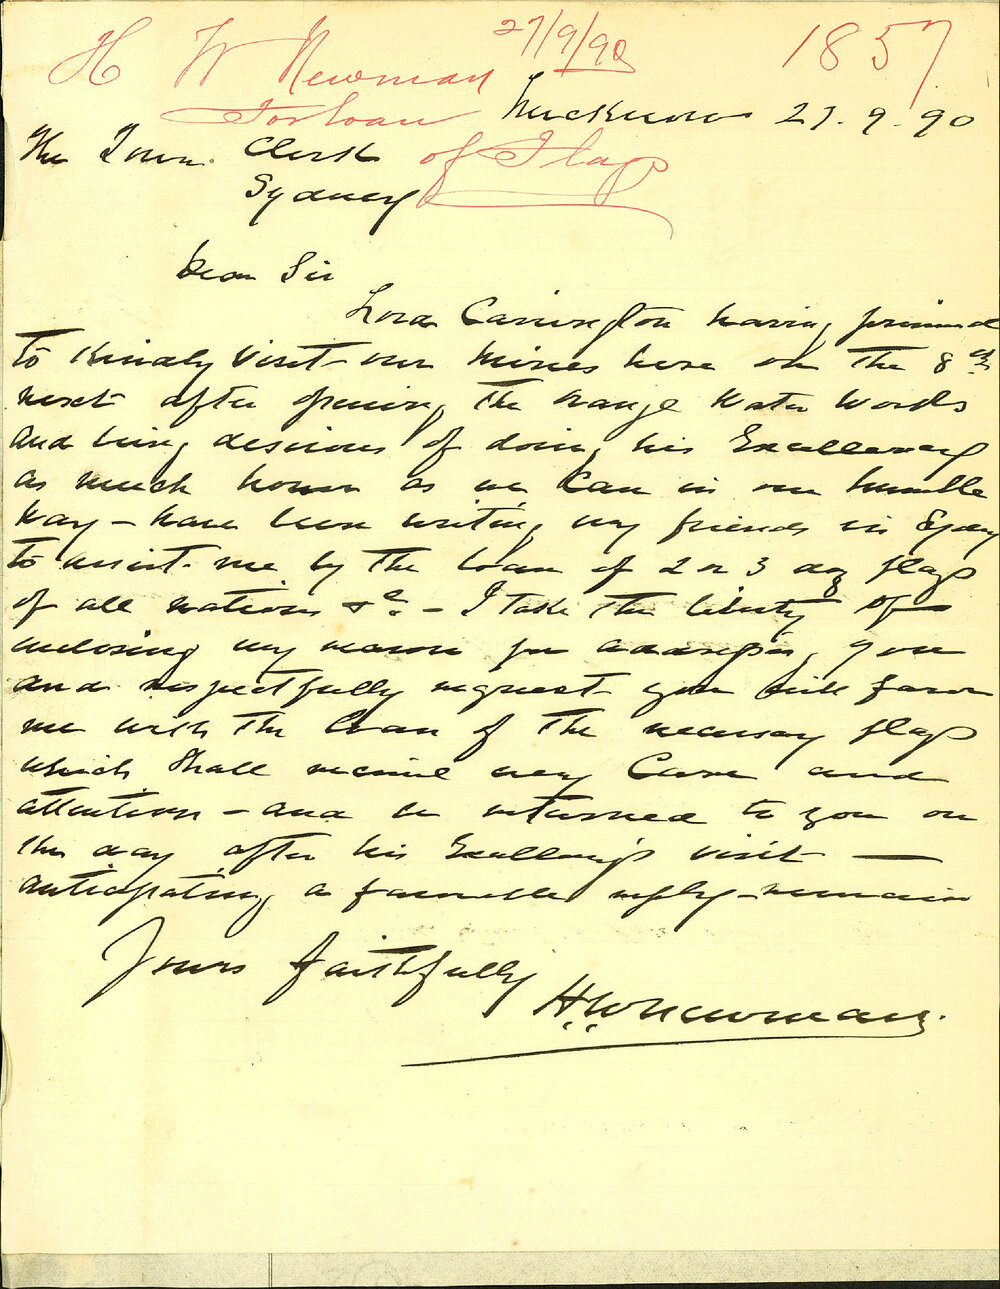 H W Newman 27/9/90 1857
For loan
of Flags
Lucknow 27.9.90
The Town Clerk
Sydney
Dear Sir
Lord Carrington having promised
to kindly visit our mines here on the 8th
next after opening the Orange Water Works
and being desirous of doing his Excellency
as much honor as we can in our humble
way – have been writing my friends in Sydney
to assist me by the loan of 2 or 3 doz flags
of all nations &c – I take the liberty of
enclosing my reason for addressing you
and respectfully request you will favor
me with the loan of the necessary flags
which shall receive every care and
attention – and be returned to you on
the day after his Excellency's visit —
anticipating a favorable reply – remain
Yours faithfully
H.W. Newman.